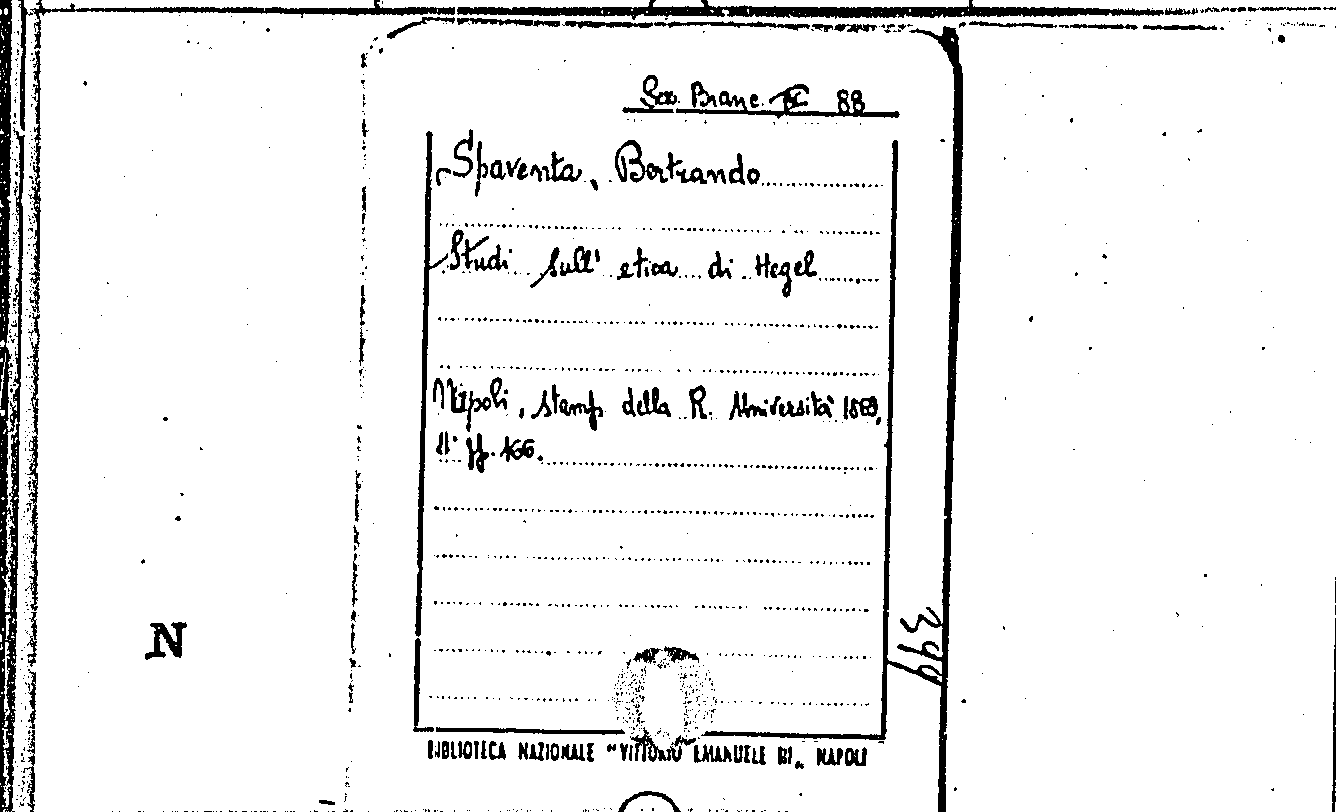 Branc. 88
Spaventa, Bertrando
Studi sull' etica di Hegel
Napoli, stamp. della R. Università 1869,
4° pp. 166.
N
399
BIBLIOTECA NAZIONALE "VITTORIO EMANUELE III„ NAPOLI